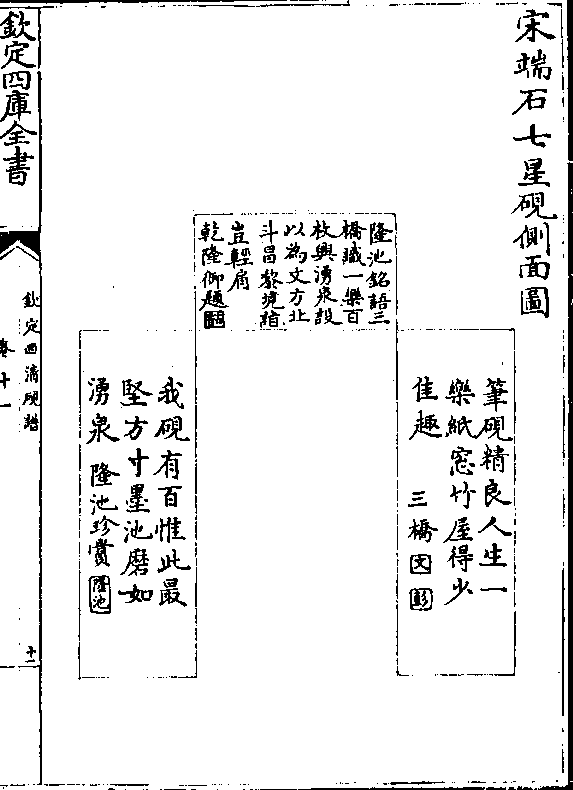 宋端石七星硯側面圖
筆硯精良人生一
樂紙窓竹屋得少
佳趣　三橋　文　彭
隆池銘語三
橋識一樂百
枚興湧泉設
以為文方北
斗昌黎境詣
豈輕扃
乾隆御題
我硯有百惟此最
堅方寸墨池磨如
湧泉　隆池珍賞　隆池
欽定四庫全書
欽定西清硯譜
卷十一
十二